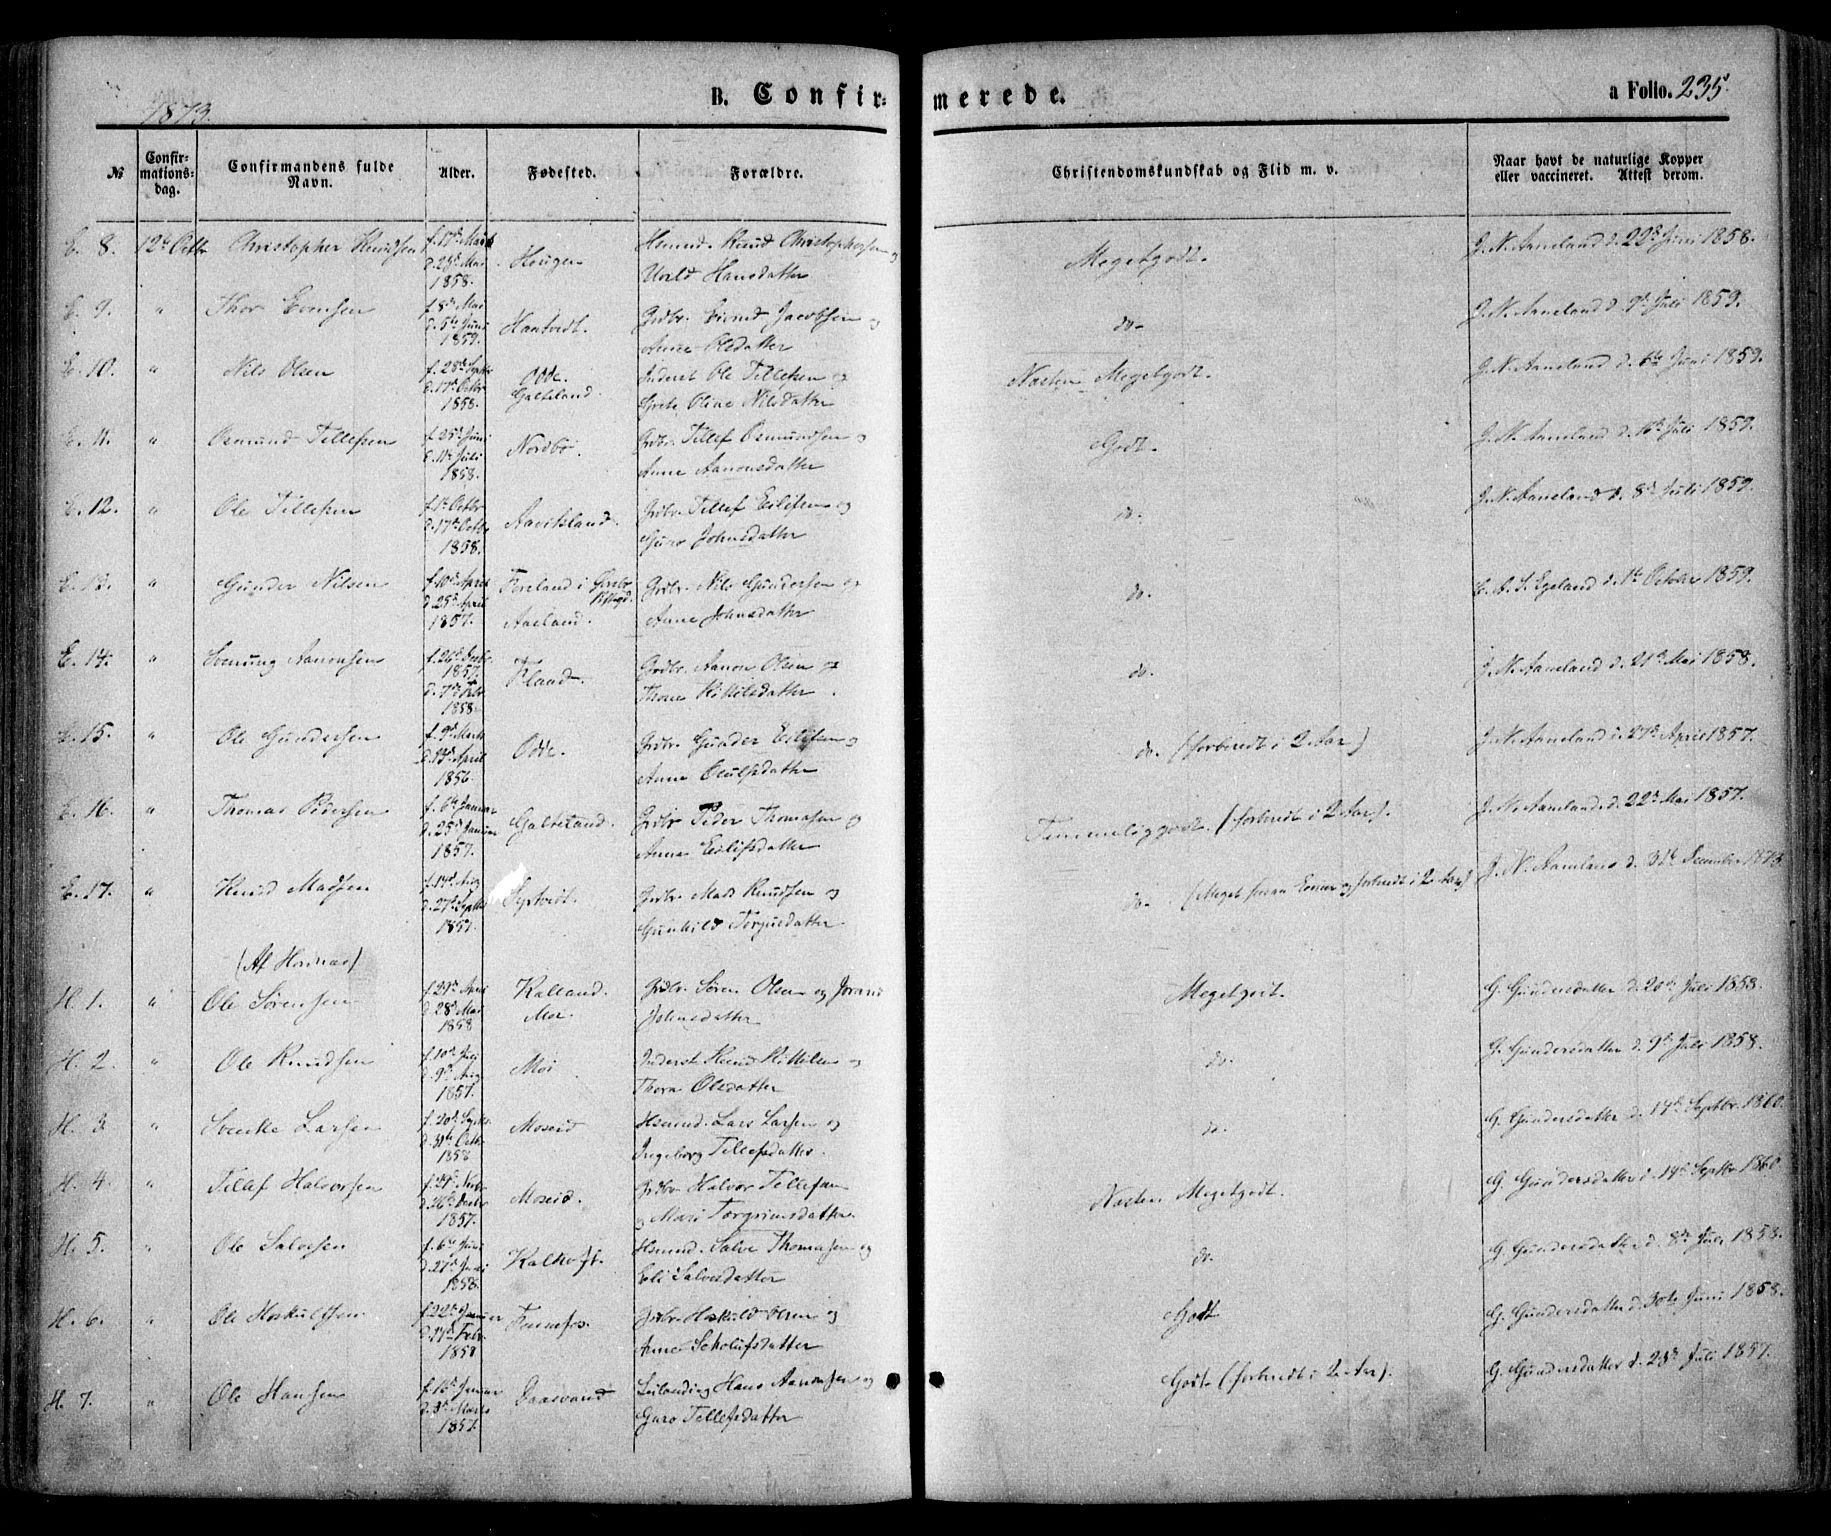 1873.
B. Confirmerede.
a Folio. 235.
№
Confirmationsdag.
Confirmandens fulde Navn.
Alder.
Fødested.
Forældre.
Christendomskundskab og Flid m. v.
Naar havt de naturlige Kopper eller vaccineret. Attest derom.
E. 8. 12te Octbr Christopher Knudsen Heugen Hsmnd. Knud Christophersen og
Hansdatter
1858.
Megetgodt.
J. N. Aaneland d. 22de Juni 1858.
E. 9. " Thor f. 8de Mai d. 5te Juni 1859. Hantvedt. Grdbr. Jacobsen og
Anne Olsdatter
do.
J. N. Aaneland d. 9de Juli 1859.
E. 10. " Nils Olsen f. 28de Septbr d. 17de Octbr 1858. Odde. Galteland. Inderst Ole Tellefsen og
Grete Oline Nilsdatter
Næsten Megetgodt.
J. N. Aaneland d. 6te Juni 1859.
E. 11. " Osmund Tellefsen f. 25de Juni d. 11te Juli 1858. Nordbø. Grdbr. Tellef Osmundsen og
Anne Aanonsdatter
Godt.
J. N. Aaneland d. Juli 1859.
E. 12. " Ole Tellefsen f. 1te Octbr d. 17de Octbr 1858. Aavitsland. Grdbr. Tellef Eilifsen og
Guro Johnsdatter
do.
J. N. Aaneland d. 8de Juli 1859.
E. 13. " Gunder Nilsen f. 10de April d. 25de April 1857. Foreland i Aaeland. Grdbr. Nils Gundersen og
Anne Johnsdatter
do.
Egeland d. 1te October 1859.
E. 14. " Aanonsen f. 26de Decbr. 1857. d. 7de Febr. 1858. Flaad. Grdbr. Aanon Olsen og
Thone Kittilsdatter
do.
J. N. Aaneland d. 21de Mai 1858.
E. 15. " Ole Gundersen f. 9de Marts d. April 1856. Odde. Grdbr. Gunder Eilifsen og
Anne
do. (forberedt i 2 Aar)
J. N. Aaneland d. 27de April 1857.
E. 16. " Thomas Pedersen f. 6te Januar d. 25de Januar 1857. Galteland. Grdbr Peder Thomasen og
Anne Eilifsdatter
Temmeliggodt. (forberedt i 2 Aar).
J. N. Aaneland d. 22de Mai 1857.
E. 17. " Knud Madsen f. 14de Aug d. 27de Septbr 1857. Syrtvedt. Grdbr. Mads Knudsen og
Gunhild Torjusdatter
do. (Meget Evner og forberedt i 2 Aar)
J. N. Aaneland d. 31te December 1873
(Af Hornnæs)
H. 1. " Ole Sørensen f. 29de April d. 28de Mai 1858 Kalland. Moe. Grdbr. Søren Olsen og
Megetgodt.
G. Gundersdatter d. 20de Juli 1858.
H. 2. " Ole Knudsen f. 10de Juli d. 9de Aug 1857. Moi Inderst Knud Kittilsen og
Thora Olsdatter
do.
G. Gundersdatter d. 9de Juli 1858.
H. 3. " Svenke Larsen f. 20de Septbr. d. 31te Octbr. 1858 Moseid Hsmnd. Lars Larsen og
Ingeborg Tellefsdatter.
do.
G. Gundersdatter d. 14de Septbr. 1860.
H. 4. " Tellef Halvorsen d. 26de Decbr 1857. Moseid. Grdbr Halvor Tellefsen
og Mari Torgrimsdatter
Næsten Megetgodt.
G. Gundersdatter d. 14de Septbr 1860.
H. 5. " Ole Salvesen f. 6te Juni d. 27de Juni 1858. Kalhoft. Hsmnd. Salve Thomasen og
Eli Salvesdatter
do.
G. Gundersdatter d. 8de Juli 1858.
H. 6. " Ole Hoskuldsen f. 22de Januar d. 14de Febr. 1858 Fennefos. Grdbr. Hoskuld Olsen og
Anne
Godt
G. Gundersdatter d. 30te Juni 1858.
H. 7. " Ole Hansen f. 16de Januar d. Marts 1857. Daasvand Leilænding Hans Aanonsen og
Guro Tellefsdatter
Godt (forberedt i 2 Aar).
G. Gundersdatter d. 28de Juli 1857.